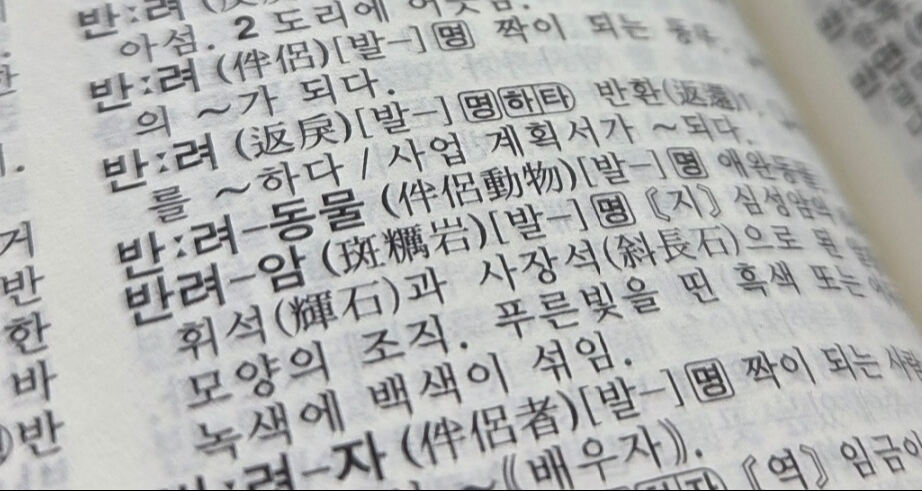 반ː려
아섬. 2 도리에
반ː려 (伴侶)[발ㅡ] 명 짝이 되는 동무.
의 ～가 되다.
반ː려 (返戾)[발ㅡ] 명 하 타 반환(返還).
를 ～하다 / 사업 계획서가 ～되다.
반ː려-동물 (伴侶動物)[발ㅡ] 명 애완동물
반려-암 (斑糲岩)[발ㅡ] 명 《지》 심성암의
휘석(輝石)과 사장석(斜長石)으로 된
모양의 조직. 푸른빛을 띤 흑색 또는
녹색에 백색이 섞임.
반ː려-자 (伴侶者)[발ㅡ] 명 짝이 되는 사람
～《배우자》.
《역》 임금이
거
반
한
바
반